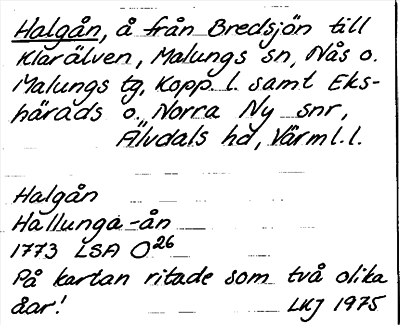 Halgån, å från Bredsjön till
Klarälven, Malungs sn, Nås o.
Malungs tg, Kopp. l. samt Eks-
härads o. Norra Ny snr,
Älvdals hd, Värml. l.
Halgån
Hallunga-ån
1773 LSA O26
På kartan ritade som två olika
åar!
LKJ 1975